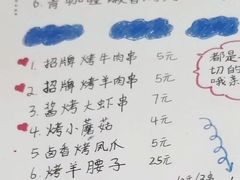 1. 招牌烤牛肉串 5元
2. 招牌烤羊肉串 5元
3. 酱烤大虾串 7元
4. 烤小蘑菇 4元
5. 卤香烤凤爪 5元
6. 烤羊腰子 25元
都是
切的